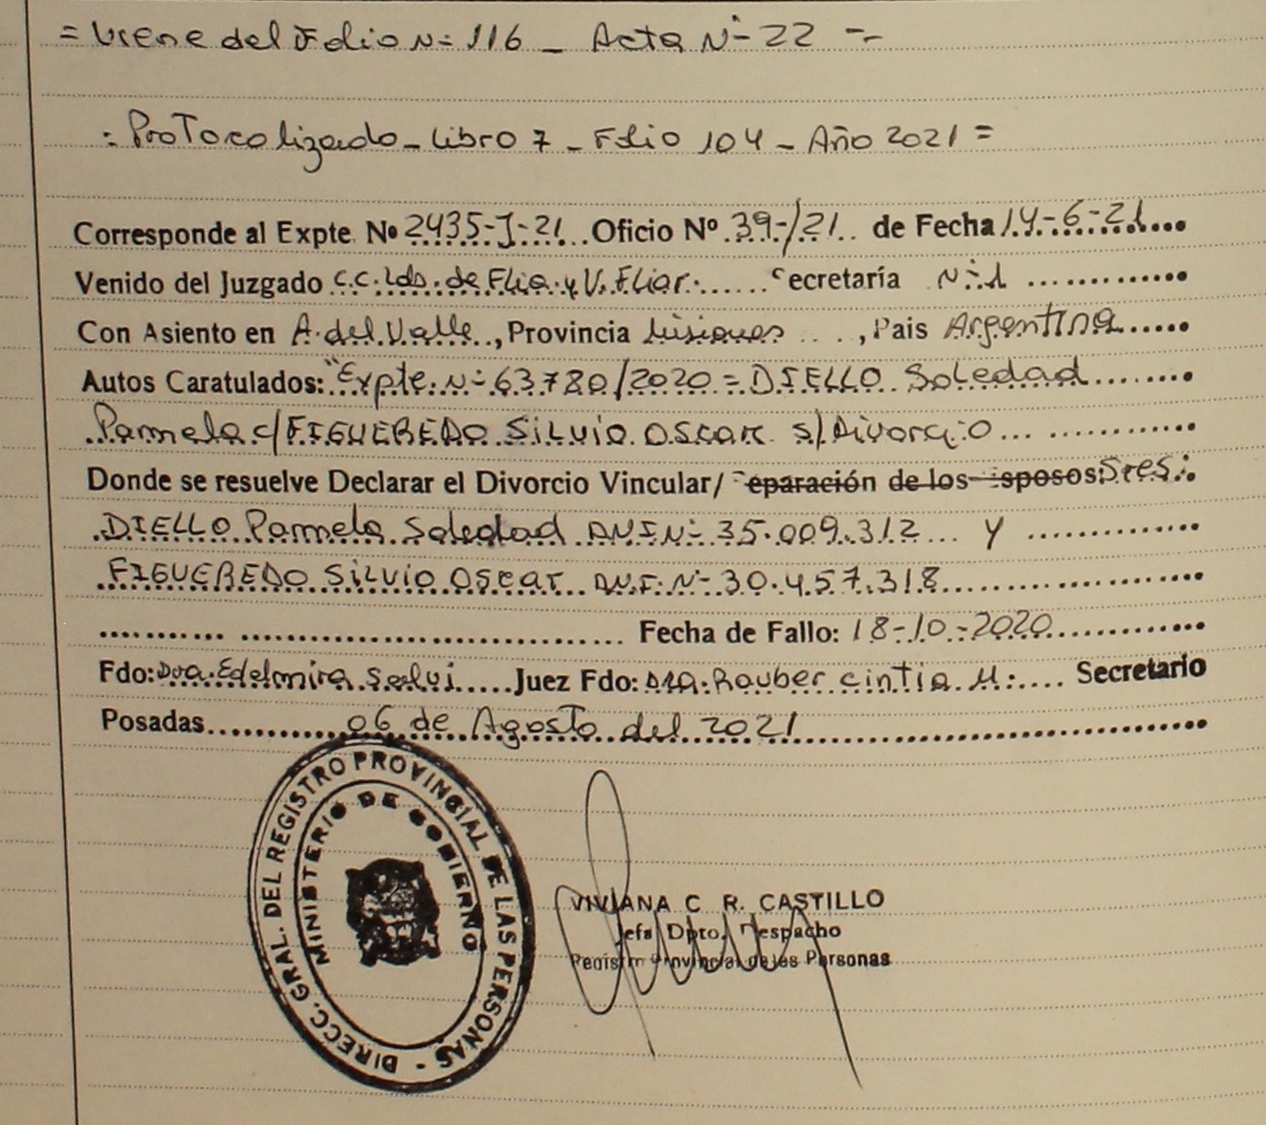 = Viene del Folio N- 116 - Acta N- 22 =-
= Protocolizado - Libro 7 - Folio 104 - Año 2021 =
Corresponde al Expte Nº 2435-J-21 Oficio Nº 39-/21 de Fecha 14-6-21
Venido del Juzgado C.C. Lds. de Flia y V. Fliar. Secretaría N-1
Con Asiento en A. del Valle, Provincia Misiones, Pais Argentina
Autos Caratulados: "Expte. N- 63780/2020 = DIELLO Soledad
Pamela c/ FIGUEREDO Silvio Oscar s/ Divorcio
Donde se resuelve Declarar el Divorcio Vincular/ Separación de los esposos: Sres:
DIELLO Pamela Soledad DNI N- 35.009.312 y
FIGUEREDO Silvio Oscar D.N.I. N- 30.457.318
Fecha de Fallo: 18-10-2020
Fdo: Dra. Edelmira Salvi Juez Fdo: Dra. Rauber Cintia M. Secretario
Posadas 06 de Agosto del 2021
DIRECC. GRAL. DEL REGISTRO PROVINCIAL DE LAS PERSONAS -
MINISTERIO DE GOBIERNO
VIVIANA C R. CASTILLO
Jefa Dpto. Despacho
Registro Provincial de las Personas